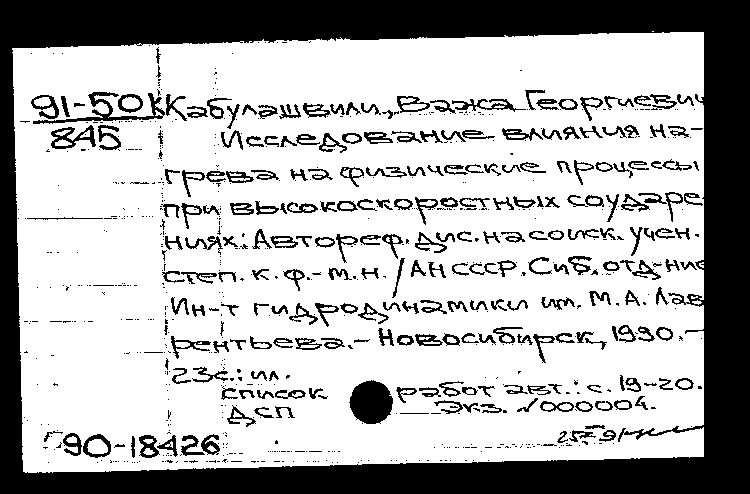 91-50к Кабулашвили, Важа Георгиевич
845 Исследование влияния на-
грева на физические процессы
при высокоскоростных соударе
ниях: Автореф. дис. на соиск. учен.
степ. к. ф.-м.н. / АН СССР. Сиб. отд-ние
Ин-т гидродинамики им. М.А. Лав
рентьева. - Новосибирск, 1990. -
23с.: ил.
список работ авт.: с. 19-20.
ДСП Экз. №000004.
90-18426